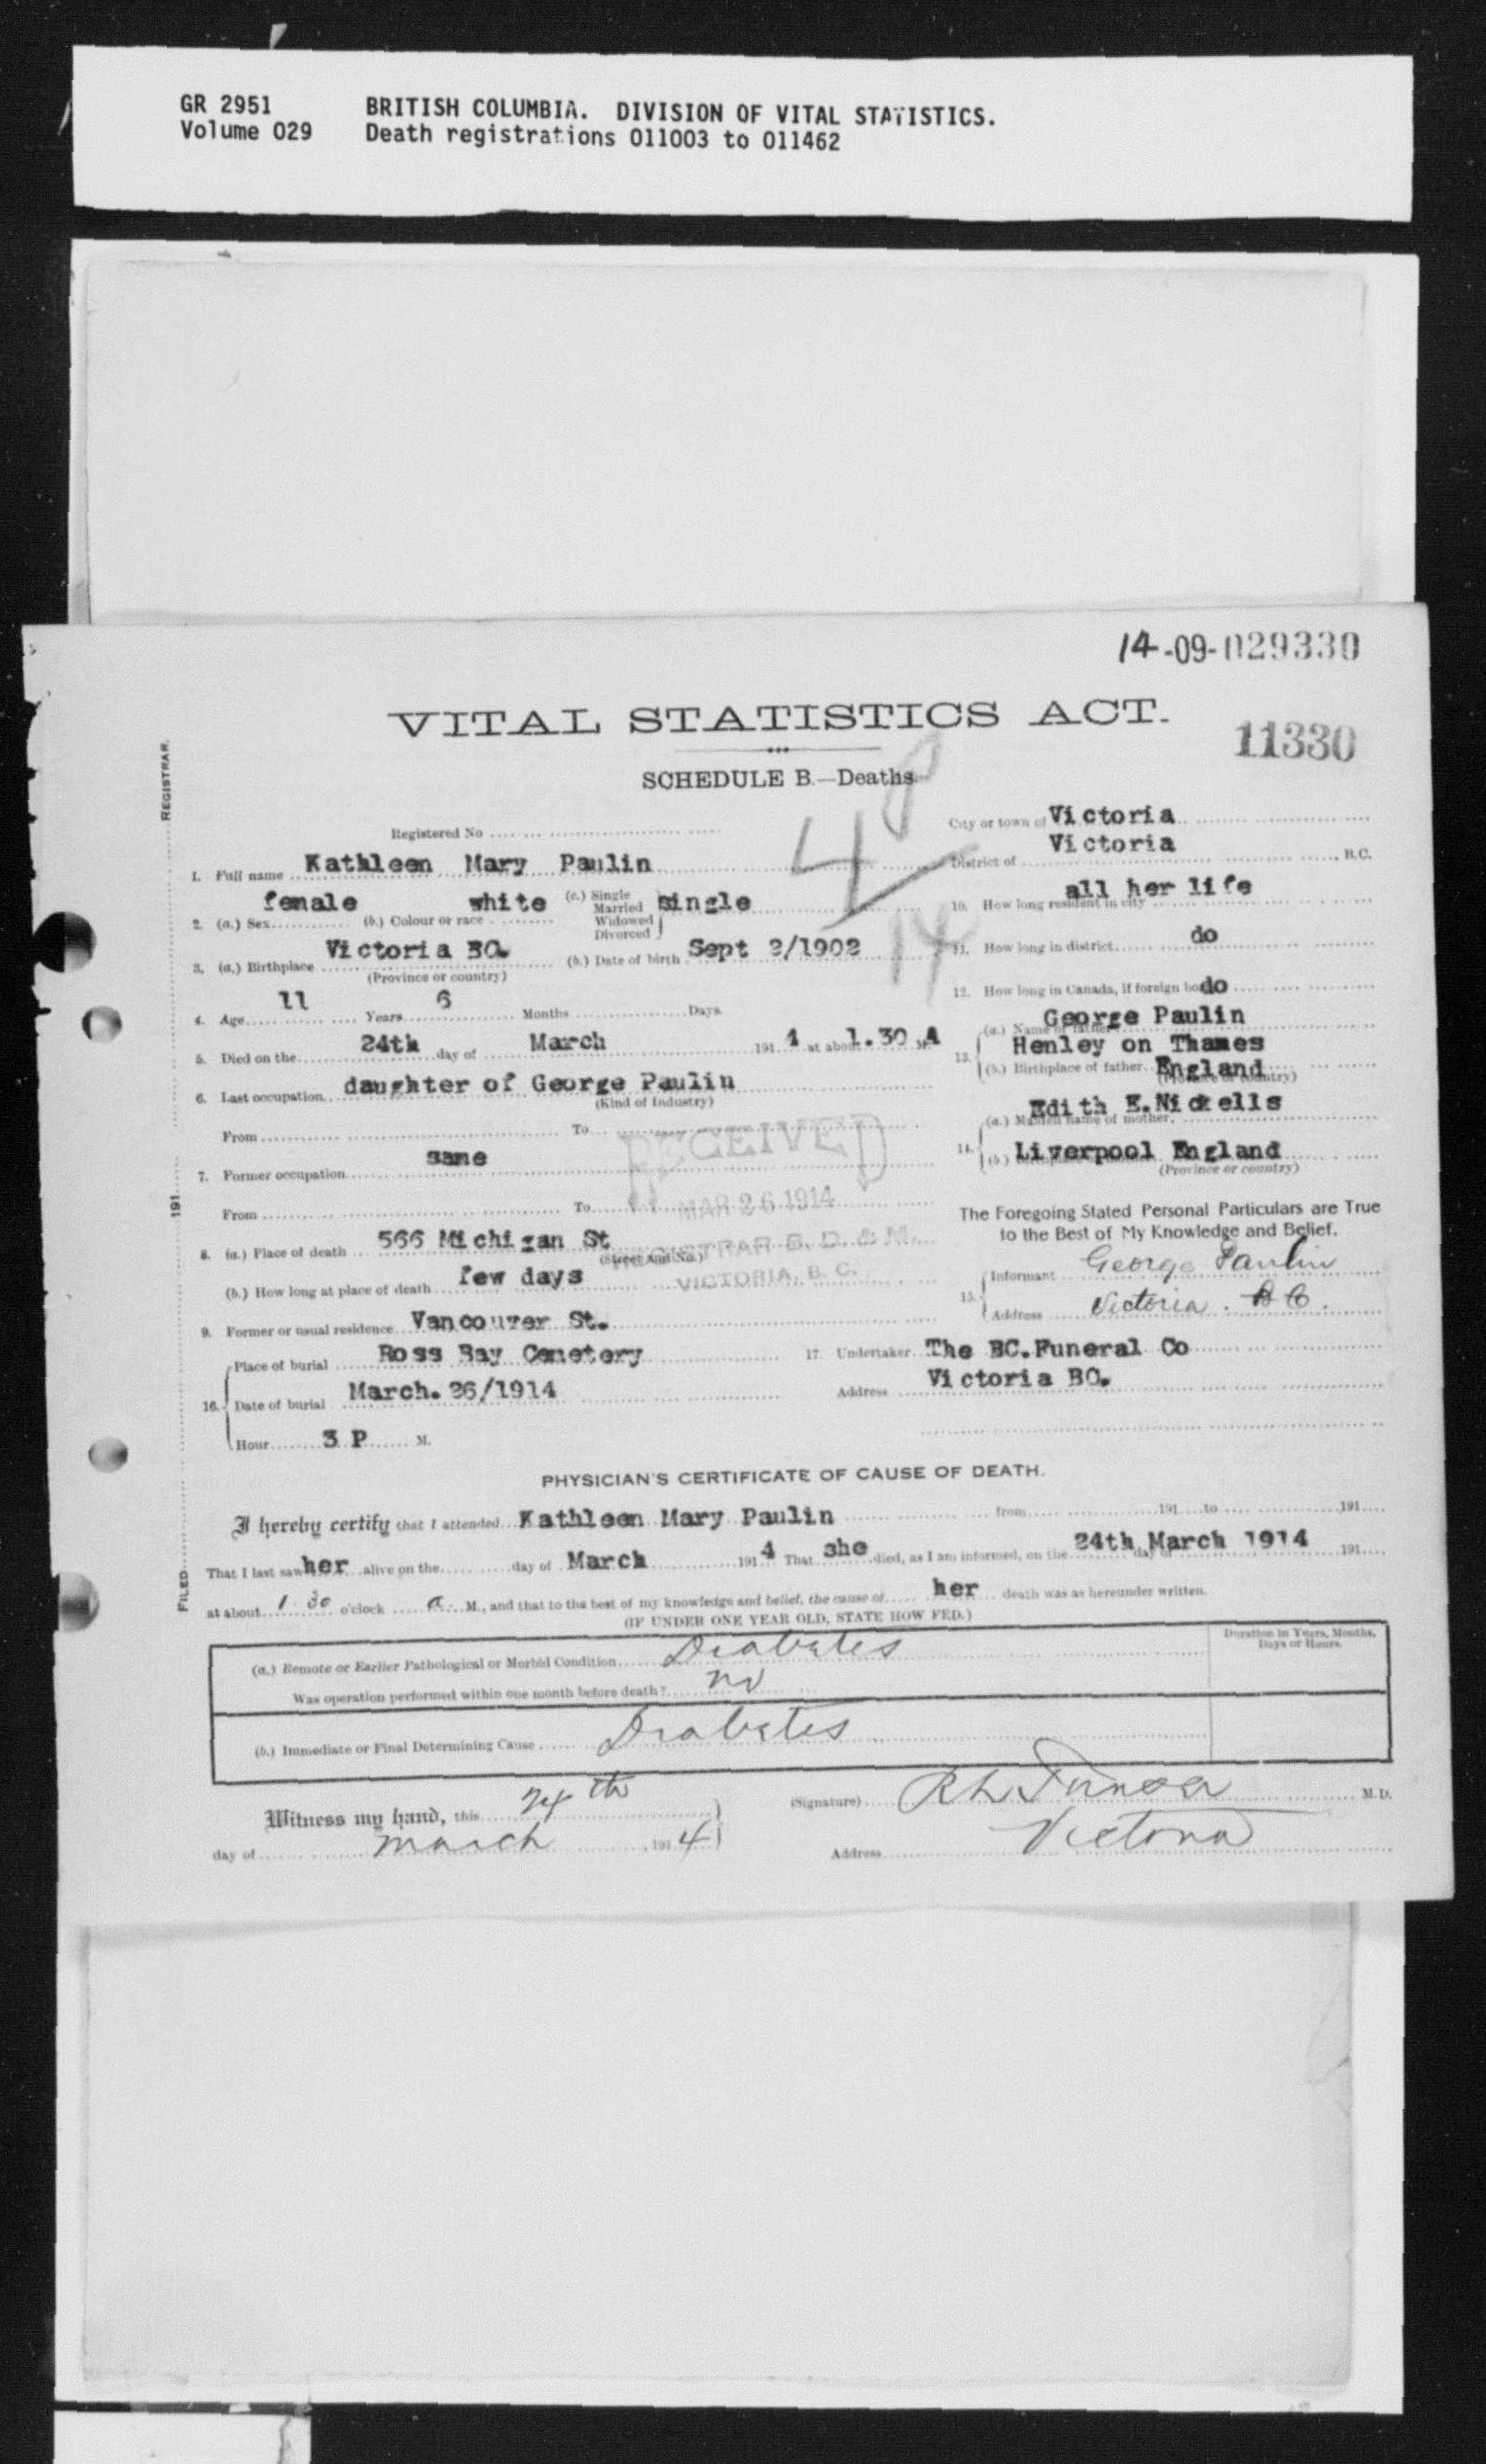 GR 2951 BRITISH COLUMBIA. DIVISION OF VITAL STATISTICS.
Volume 029 Death registrations 011003 to 011462
14-09-029330
VITAL STATISTICS ACT.
11330
SCHEDULE B.—Deaths.
Registered No
City or town of Victoria
District of Victoria B.C.
1. Full name Kathleen Mary Paulin
2. (a.) Sex female (b.) Colour or race white (c.) Single Married Widowed Divorced single
3. (a.) Birthplace Victoria BC. (Province or country) (b.) Date of birth Sept 2/1902
4. Age 11 Years 6 Months Days.
5. Died on the 24th day of March 1914 at about 1.30 A M
6. Last occupation daughter of George Paulin
(Kind of Industry)
From To
7. Former occupation same
From To
8. (a.) Place of death 566 Michigan St
(Street and No.)
(b.) How long at place of death few days
9. Former or usual residence Vancouver St.
16. Place of burial Ross Bay Cemetery
Date of burial March. 26/1914
Hour 3 P M.
RECEIVED
MAR 26 1914
REGISTRAR B. D. & M.
VICTORIA, B. C.
10. How long resident in city all her life
11. How long in district do
12. How long in Canada, if foreign born do
13. (a.) Name of father George Paulin
(b.) Birthplace of father Henley on Thames England
(Province or country)
14. (a.) Maiden name of mother Edith E. Nickells
(b.) Liverpool England
(Province or country)
The Foregoing Stated Personal Particulars are True
to the Best of My Knowledge and Belief.
15. Informant George Paulin
Address Victoria. B C.
17. Undertaker The BC. Funeral Co
Address Victoria BC.
PHYSICIAN'S CERTIFICATE OF CAUSE OF DEATH.
I hereby certify that I attended Kathleen Mary Paulin from 191 to 191
That I last saw her alive on the day of March 1914 That she died, as I am informed, on the 24th day of March 1914 191
at about 1 30 o'clock a. M., and that to the best of my knowledge and belief, the cause of her death was as hereunder written.
(IF UNDER ONE YEAR OLD, STATE HOW FED.)
Duration in Years, Months,
Days or Hours.
(a.) Remote or Earlier Pathological or Morbid Condition Diabetes
Was operation performed within one month before death? no
(b.) Immediate or Final Determining Cause Diabetes
Witness my hand, this 24th
day of march 1914
(Signature) M.D.
Address Victoria
FILED 191 REGISTRAR.